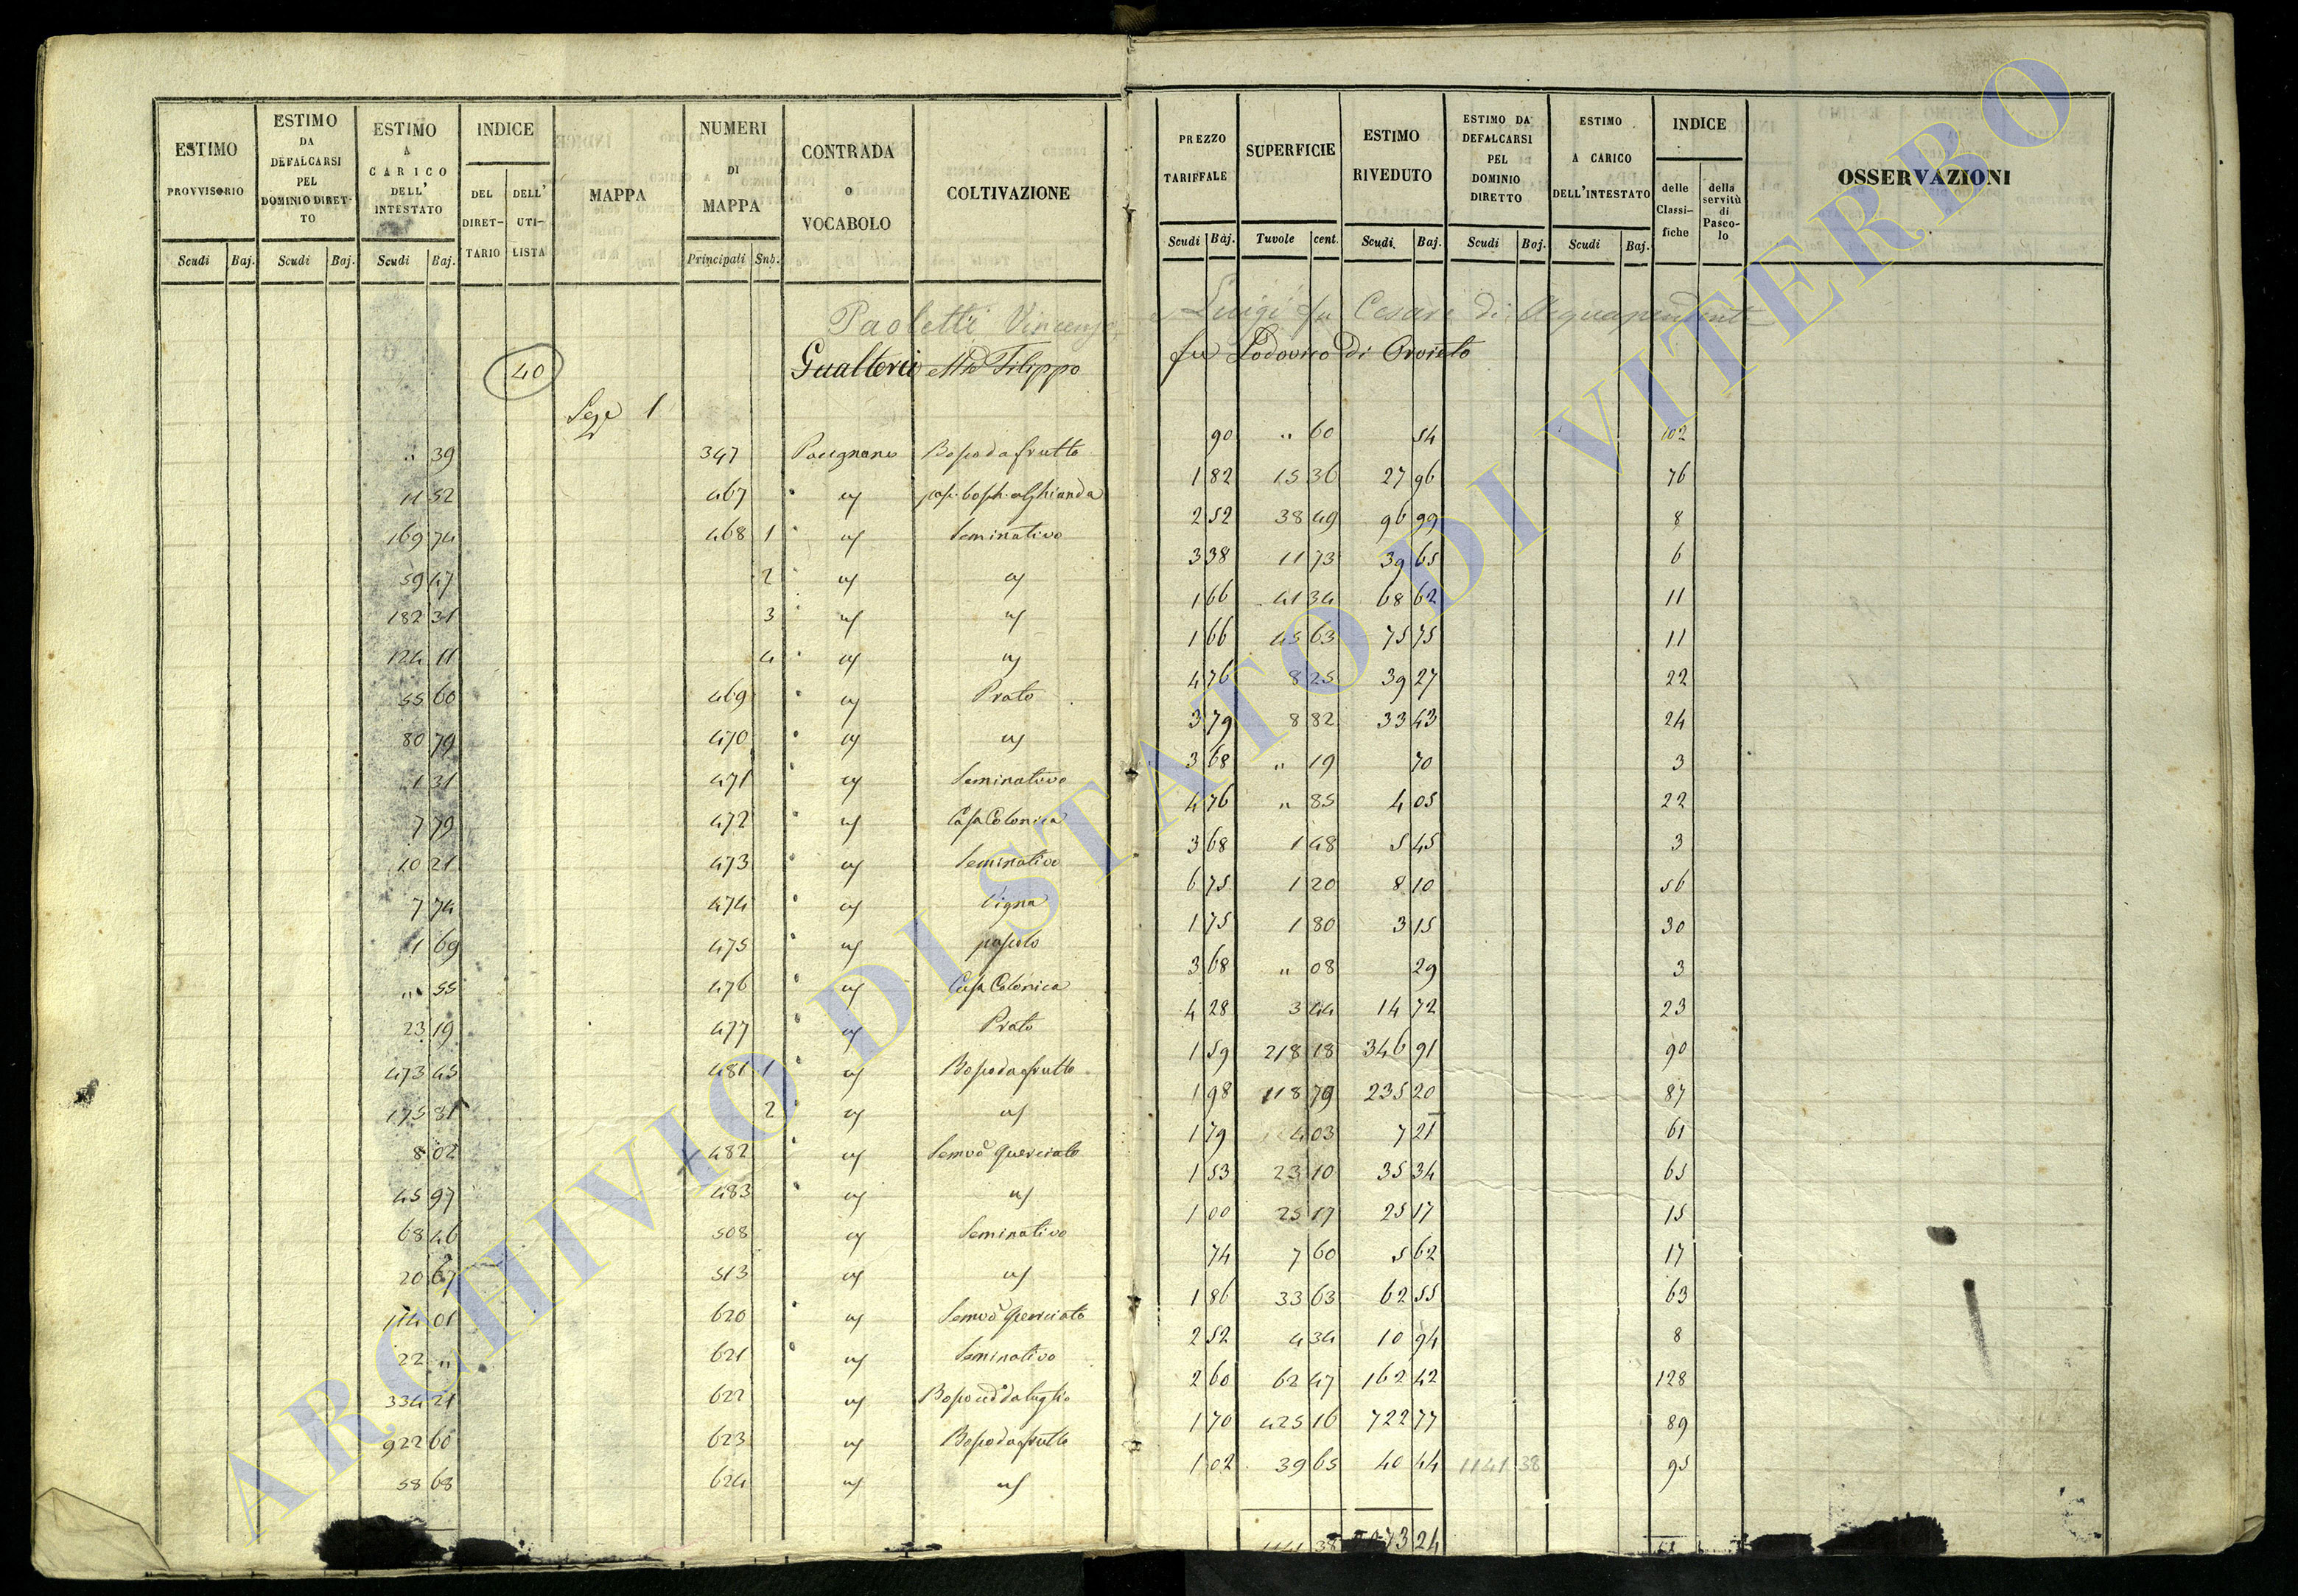 ESTIMO PROVVISORIO Scudi Baj.
ESTIMO DA DEFALCARSI PEL DOMINIO DIRET-TO Scudi Baj.
ESTIMO A CARICO DELL' INTESTATO Scudi Baj.
INDICE DEL DIRET-TARIO DELL' UTI-LISTA
MAPPA
NUMERI DI MAPPA Principali Sub.
CONTRADA O VOCABOLO
COLTIVAZIONE
PREZZO TARIFFALE Scudi Baj.
SUPERFICIE Tavole cent.
ESTIMO RIVEDUTO Scudi Baj.
ESTIMO DA DEFALCARSI PEL DOMINIO DIRETTO Scudi Baj.
ESTIMO A CARICO DELL'INTESTATO Scudi Baj.
INDICE delle Classi-fiche della servitù di Pasco-lo
OSSERVAZIONI
Paoletti Vincenzo e Luigi fu Cesare di Acquapendente
40 Gualterio Filippo fu Lodovico di Orvieto
1
" 39 347 Bosco da frutto 90 " 60 54 102
11 52 467 " " 1 82 15 36 27 96 76
169 74 468 1 " Seminativo 2 52 38 49 96 99 8
59 47 2 " 3 38 11 73 39 65 6
182 31 3 " 1 66 41 34 68 62 11
124 11 4 " 1 66 45 63 75 75 11
55 60 469 " Prato 4 76 8 25 39 27 22
80 79 470 " 3 79 8 82 33 43 24
1 31 471 " Seminativo 3 68 " 19 70 3
7 79 472 " Casa Colonica 4 76 " 85 4 05 22
10 21 473 " Seminativo 3 68 1 48 5 45 3
7 74 474 " Vigna 6 75 1 20 8 10 56
1 69 475 " pascolo 1 75 1 80 3 15 30
" 55 476 " Casa Colonica 3 68 " 08 29 3
23 19 477 " Prato 4 28 3 44 14 72 23
473 45 481 1 " Bosco da frutto 1 59 218 18 346 91 90
175 81 2 " 1 98 118 79 235 20 87
8 02 482 " Semvo Querciato 1 79 4 03 7 21 61
45 97 483 " 1 53 23 10 35 34 65
68 46 508 Seminativo 1 00 25 17 25 17 15
20 67 513 74 7 60 5 62 17
114 01 620 " Semvo Querciato 1 86 33 63 62 55 63
22 " 621 " Seminativo 2 52 4 34 10 94 8
334 21 622 Bosco 2 60 62 47 162 42 128
922 60 623 Bosco da frutto 1 70 425 16 722 77 89
58 68 624 1 02 39 65 40 44 1141 38 95
1141 38 73 24
ARCHIVIO DI STATO DI VITERBO